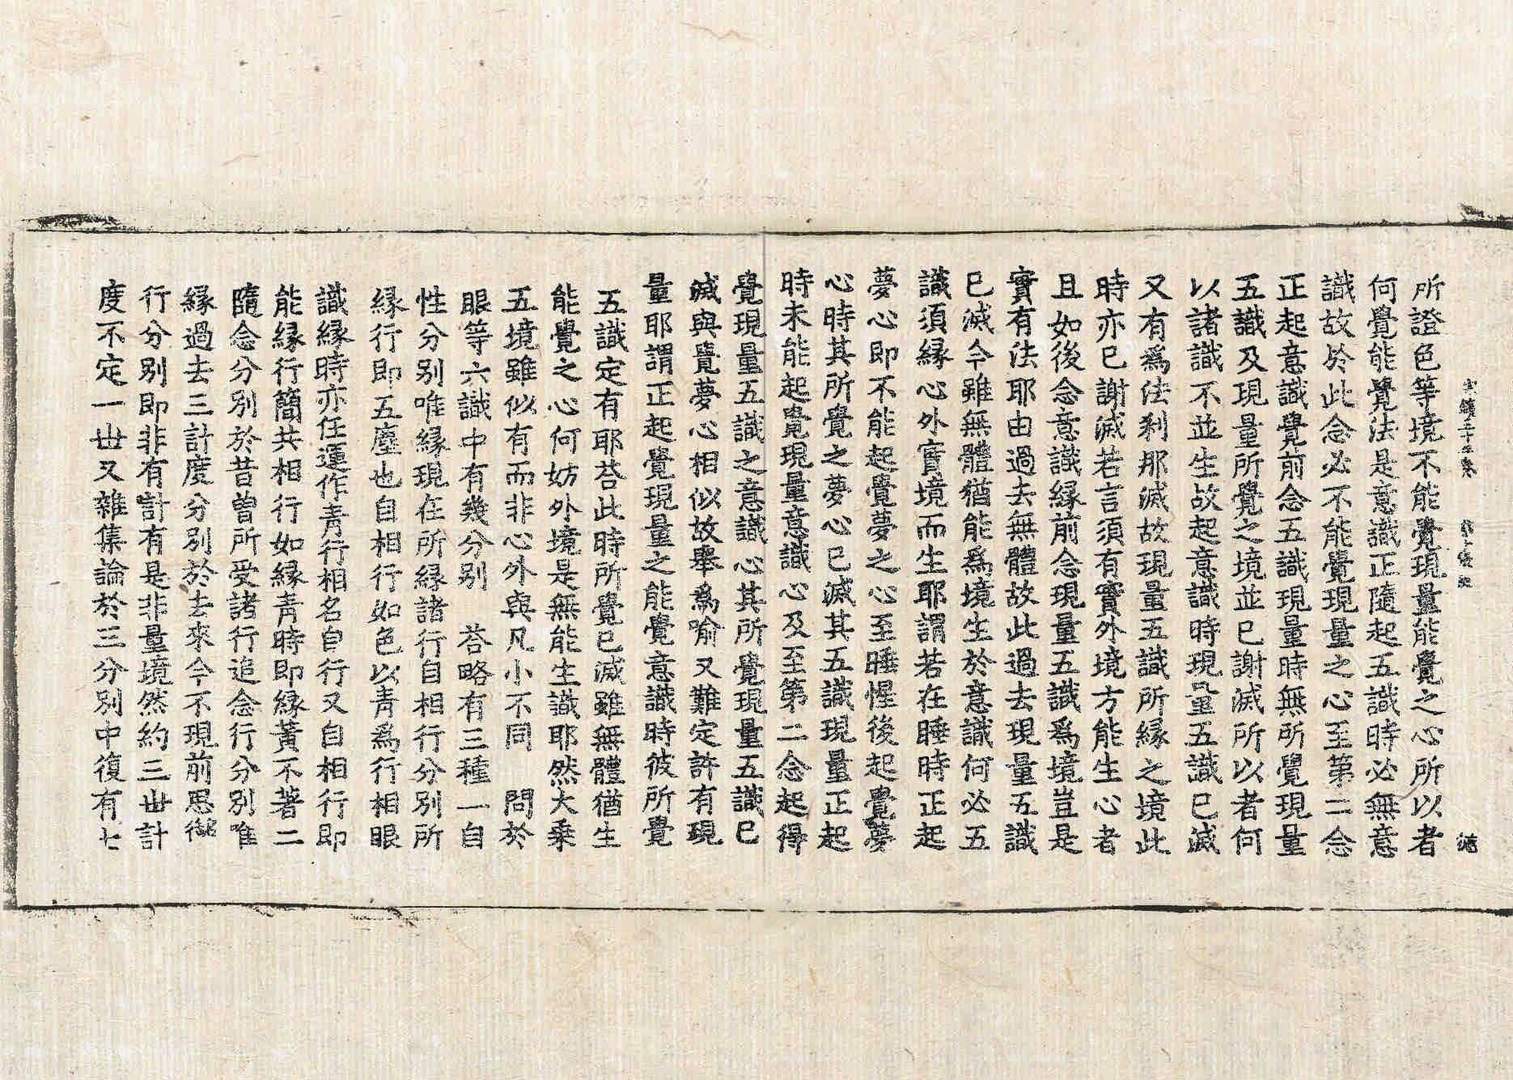 所證色等境不能覺現量能覺之心所以者
何覺能覺法是意識正隨起五識時必無意
識故於此念必不能覺現量之心至第二念
正起意識覺前念五識現量時無所覺現量
五識及現量所覺之境並已謝滅所以者何
以諸識不並生故起意識時現量五識已滅
又有爲法剎那滅故現量五識所緣之境此
時亦已謝滅若言須有實外境方能生心者
且如後念意識緣前念現量五識爲境豈是
實有法耶由過去無體故此過去現量五識
已滅今雖無體猶能爲境生於意識何必五
識須緣心外實境而生耶謂若在睡時正起
夢心即不能起覺夢之心至睡惺後起覺夢
心時其所覺之夢心已滅其五識現量正起
時未能起覺現量意識心及至第二念起得
覺現量五識之意識心其所覺現量五識已
滅與覺夢心相似故舉爲喻又難定許有現
量耶謂正起覺現量之能覺意識時彼所覺
五識定有耶荅此時所覺已滅雖無體猶生
能覺之心何妨外境是無能生識耶然大乘
五境雖似有而非心外與凡小不同 問於
眼等六識中有幾分別 荅略有三種一自
性分別唯緣現在所緣諸行自相行分別所
緣行即五塵也自相行如色以青爲行相眼
識緣時亦任運作青行相名自行又自相行即
能緣行簡共相行如緣青時即緣黃不著二
隨念分別於昔曾所受諸行追念行分別唯
緣過去三計度分別於去來今不現前思搆
行分別即非有計有是非量境然約三世計
度不定一世又雜集論於三分別中復有七